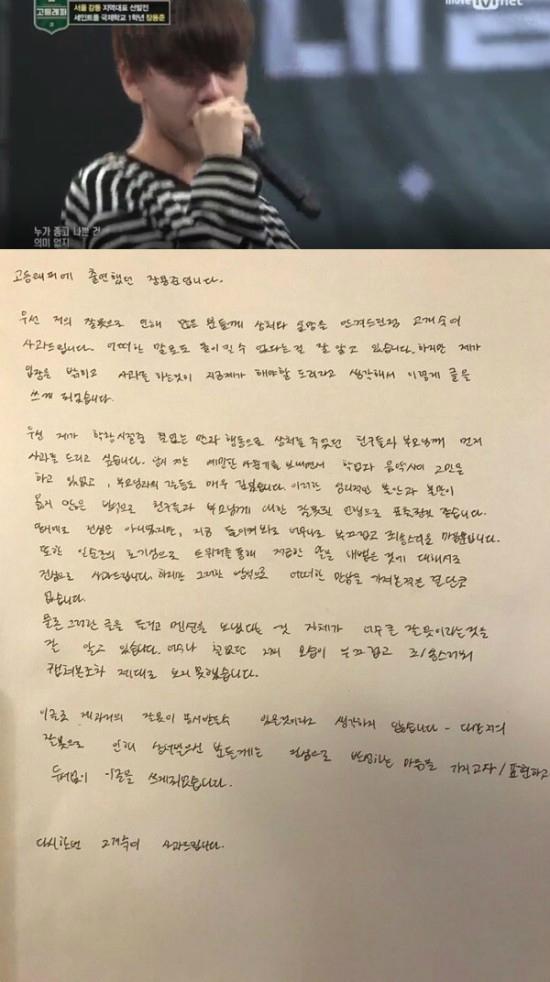 고등래퍼
서울 강동 지역대표 선발전
세인트폴 국제학교 1학년 장용준
net
누가 좋고 나쁜 건
의미 없지
고등래퍼에 출연했던 장용준입니다.
우선 저의 잘못으로 인해 많은 분들께 상처와 실망을 안겨드린점 고개숙여
사과드립니다. 어떠한 말로도 풀어질 수 없다는걸 잘 알고 있습니다. 하지만 제가
입장을 밝히고 사과를 하는것이 지금 제가 해야할 도리라고 생각해서 이렇게 글을
쓰게 되었습니다.
우선 제가 학창시절중 철없는 말과 행동으로 상처를 주었던 친구들과 부모님께 먼저
사과를 드리고 싶습니다. 당시 저는 예민한 사춘기를 보내면서 학업과 음악사이 고민을
하고 있었고, 부모님과의 갈등도 매우 깊었습니다. 이러한 심리적인 불안과 불만이
옳지 않은 방식으로 친구들과 부모님께 대한 잘못된 언행으로 표출된것 같습니다.
절대로 진심은 아니었지만, 지금 돌이켜봐도 너무나도 부끄럽고 죄송스러운 마음뿐입니다.
또한 일순간의 호기심으로 트위터를 통해 저급한 말을 내뱉은 것에 대해서도
진심으로 사과드립니다. 하지만 그러한 방식으로 어떠한 만남을 가져본적은 결단코
없습니다.
물론 그러한 글을 올리고 멘션을 보냈다는 것 자체가 너무 큰 잘못이라는것을
잘 알고 있습니다. 너무나 철없던 제 모습이 부끄럽고 죄송스러워
캡쳐본조차 제대로 보지 못했습니다.
이글로 제 과거의 잘못이 용서받을수 있을것이라고 생각하지 않습니다 - 다만 저의
잘못으로 인해 상처받으신 분들께는 진심으로 반성하는 마음을 가지고자/표현하고
두서없이 이글을 쓰게되었습니다.
다시한번 고개숙여 사과드립니다.